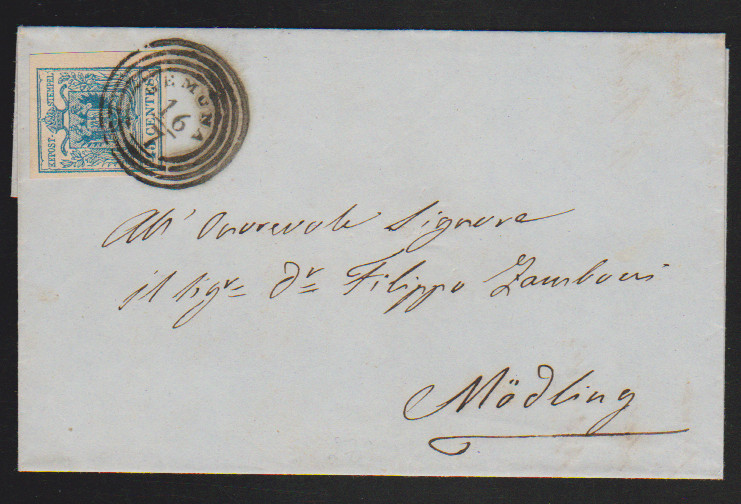 KKPOST-STEMPEL
CENTES
GEMONA
16
All' Onorevole Signore
il Sigr. Dr. Filippo Zamboni
Mödling